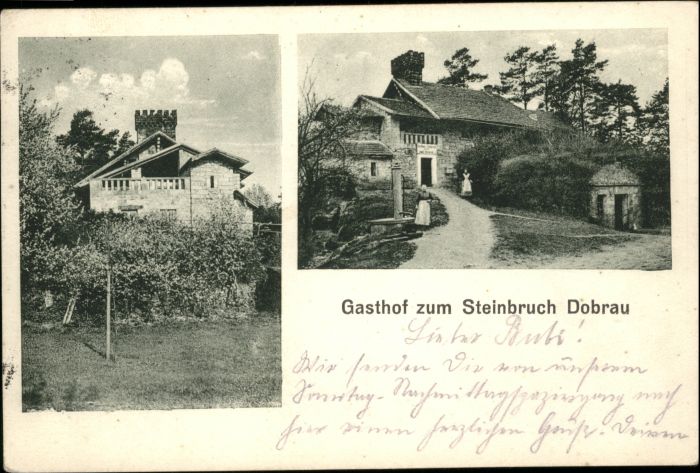 Gasthof zum Steinbruch Dobrau
Lieber Bubi!
Wir senden Dir von unserem
Sonntag-Nachmittagspaziergang nach
hier einen herzlichen Gruß.